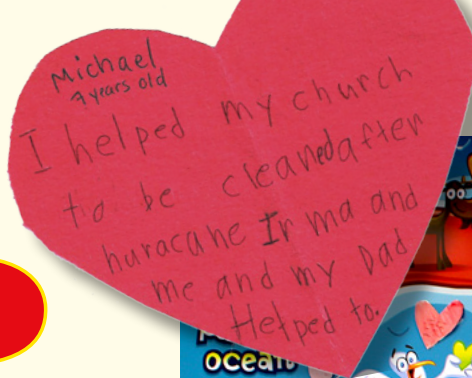 Michael
7 years old
I helped my church
to be cleaned after
huracane Irma and
me and my Dad
Helped to.
ocean